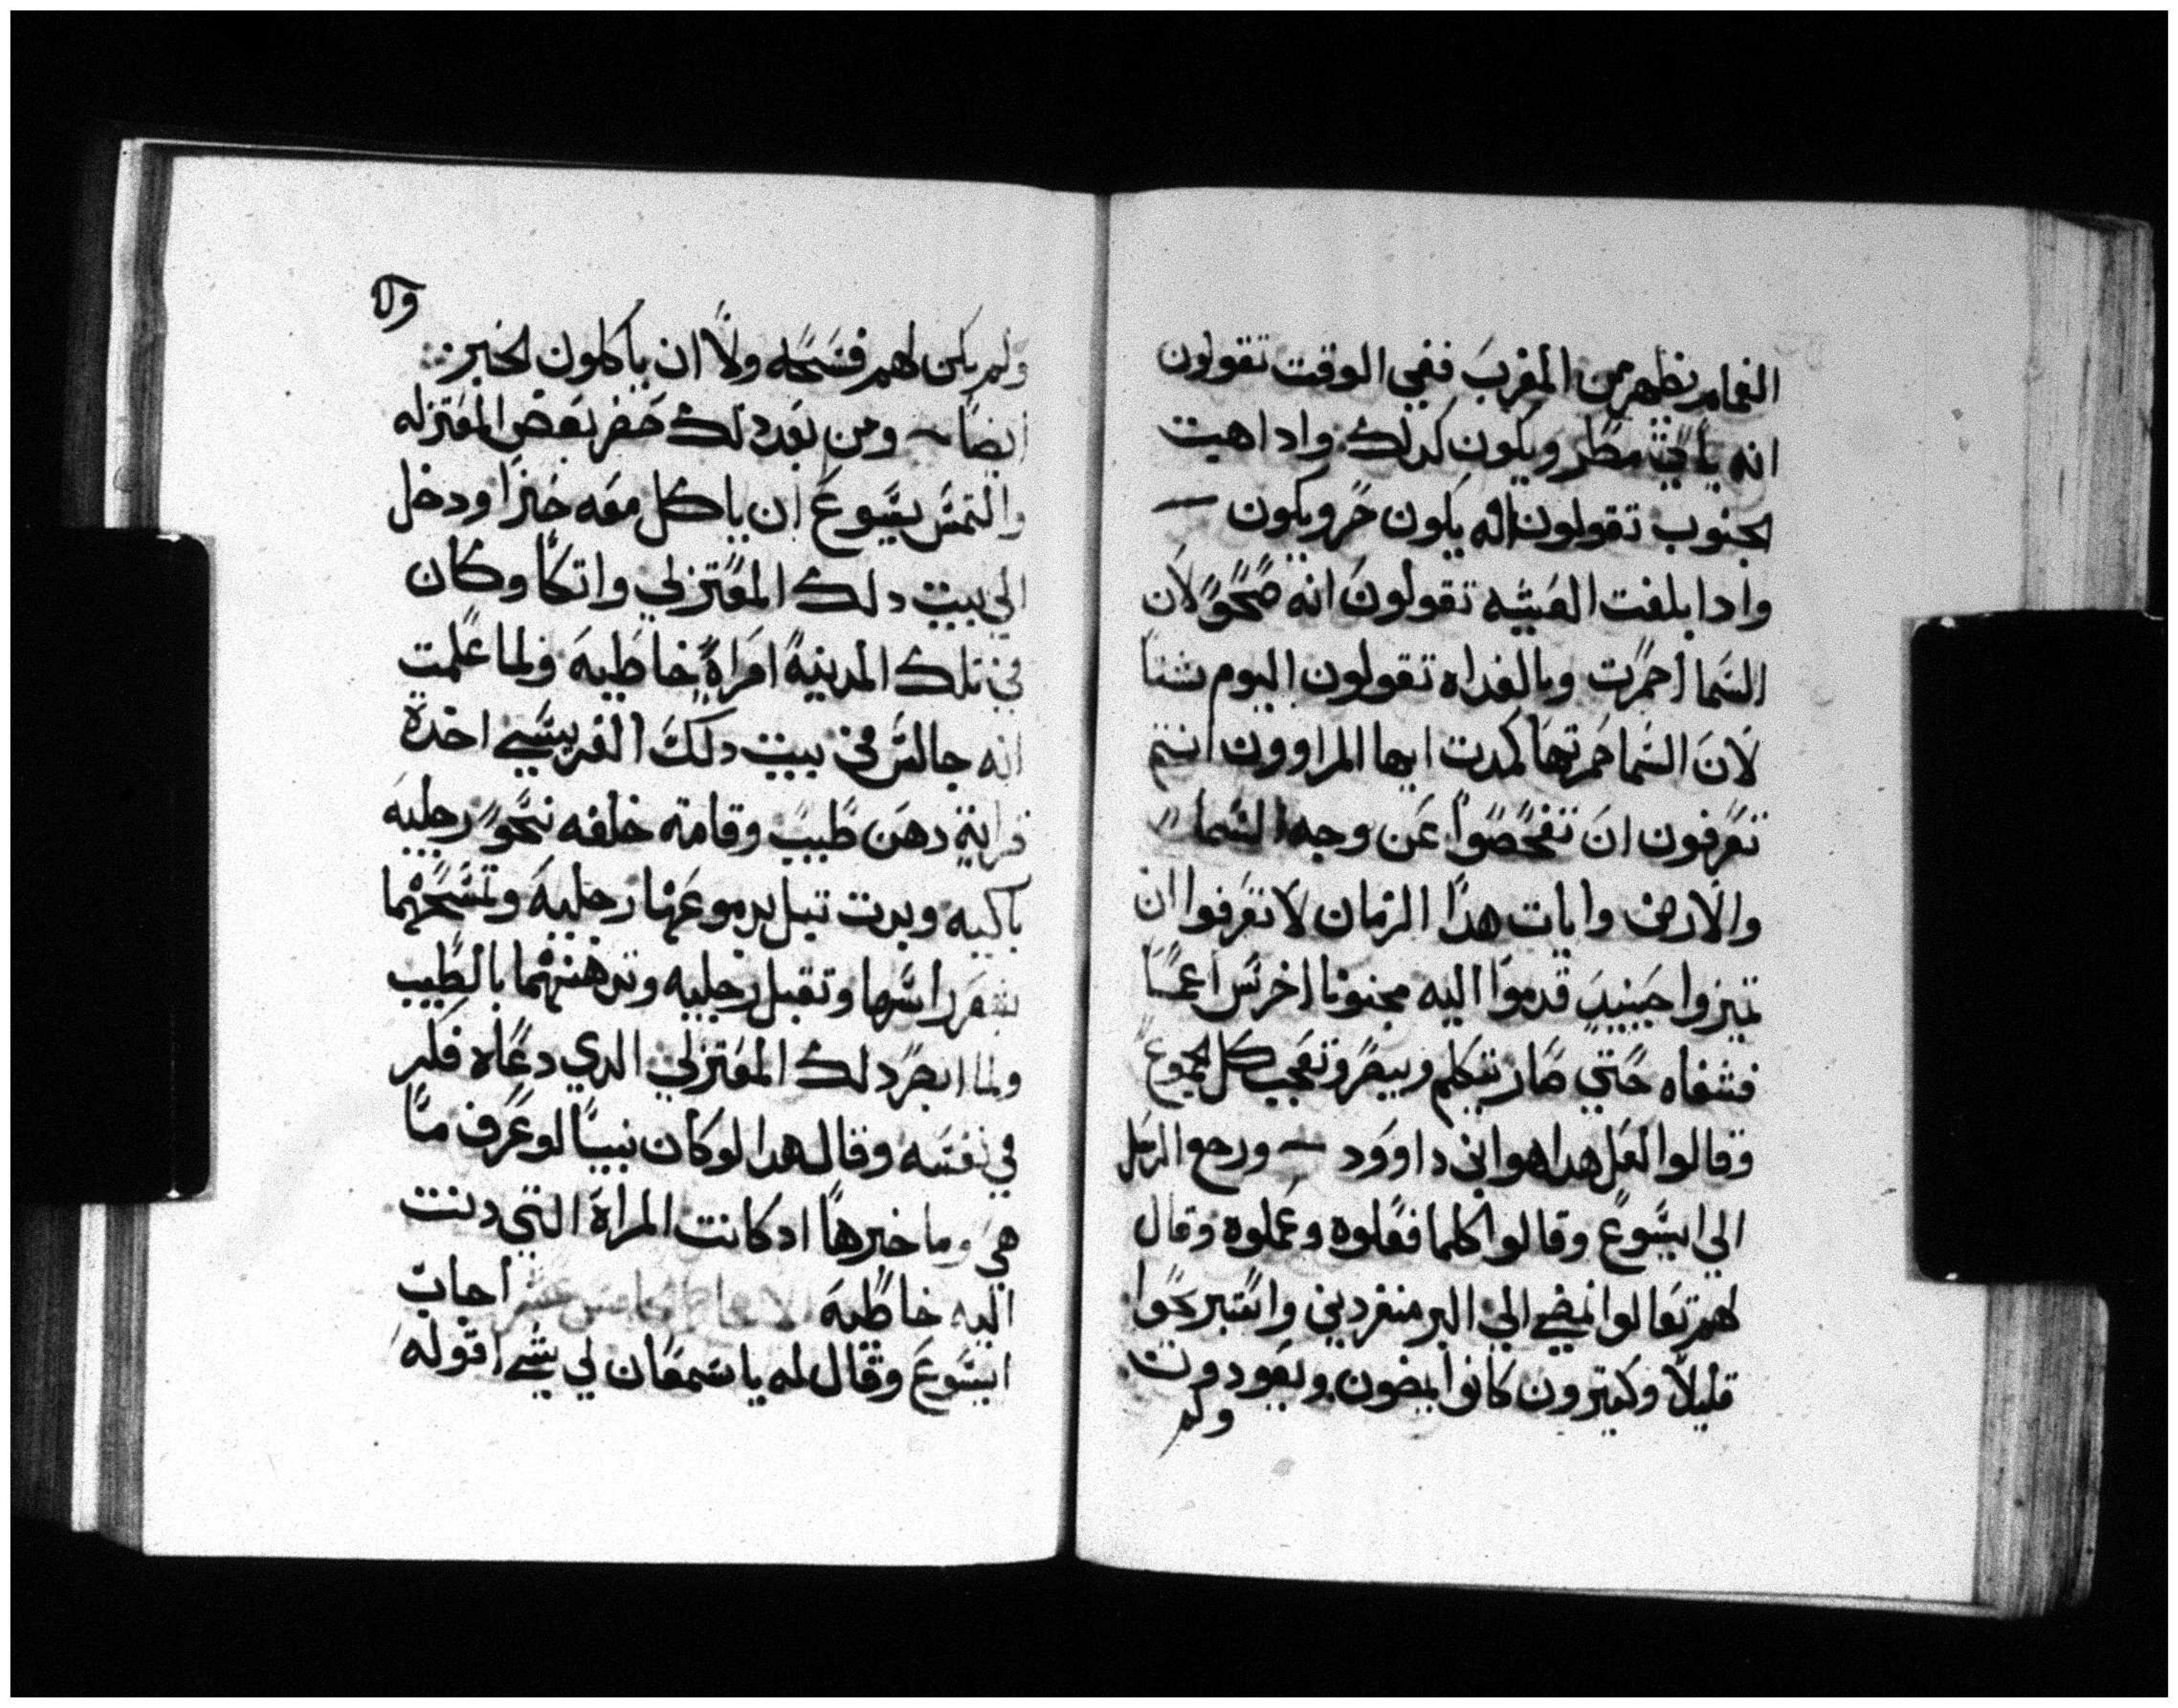 الغمام يظهر من المغرب ففي الوقت تقولون
انه ياتي مطر ويكون كدلك واداهبت
الجنوب تقولون انه يكون حر ويكون
وادا بلغت العشيه تقولون انه صحو لان
السما احمرت وبالغداه تقولون اليوم شتا
لان السما حمرتها كمدت ايها المراوون انتم
تعرفون ان تفحصوا عن وجه السما
والارض وايات هدا الزمان لا تعرفوا ان
تميزوا حينيد قدموا اليه مجنونا اخرس اعما
فشفاه حتي صار يتكلم ويبصر وتعجب كل الجموع
وقالوا لعل هدا هو ابن داوود ورجع الرسل
الي ايسوع وقالوا كلما فعلوه وعملوه وقال
لهم تعالوا نمضي الي البر منفردين واستريحوا
قليلا وكتيرون كانوا يمضون ويعودون
ولم
ولم يكن لهم فسحه ولا ان ياكلون الخبز
ايضا ومن بعد دلك حضر بعض المعتزله
والتمس يسوع ان ياكل معه خبزا ودخل
الي بيت دلك المعتزلي واتكا وكان
في تلك المدينة امراة خاطيه ولما علمت
انه جالس في بيت دلك الفريسي اخدة
دهن طيب وقامة خلفه نحو رجليه
باكيه وبدت تبل بدموعها رجليه وتمسحهما
بشعر راسها وتقبل رجليه وتدهنهما بالطيب
ولما ابصر دلك المعتزلي الدي دعاه فكر
في نفسه وقال هدا لو كان نبيا لو عرف ما
هي وما خبرها اد كانت المراة التي دنت
اليه خاطيه اجاب
ايسوع وقال له يا سمعان لي شي اقوله